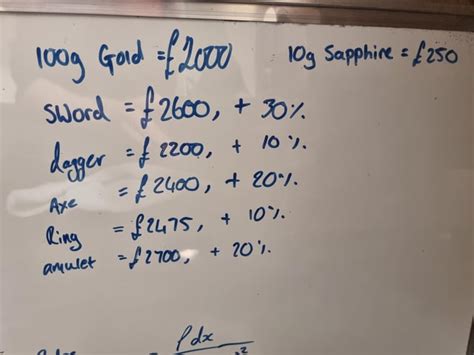 100g Gold = £2000
10g Sapphire = £250
Sword = £2600, + 30%.
dagger = £2200, + 10%.
Axe = £2400, + 20%.
Ring = £2475, + 10%.
amulet = £2700, + 20%.